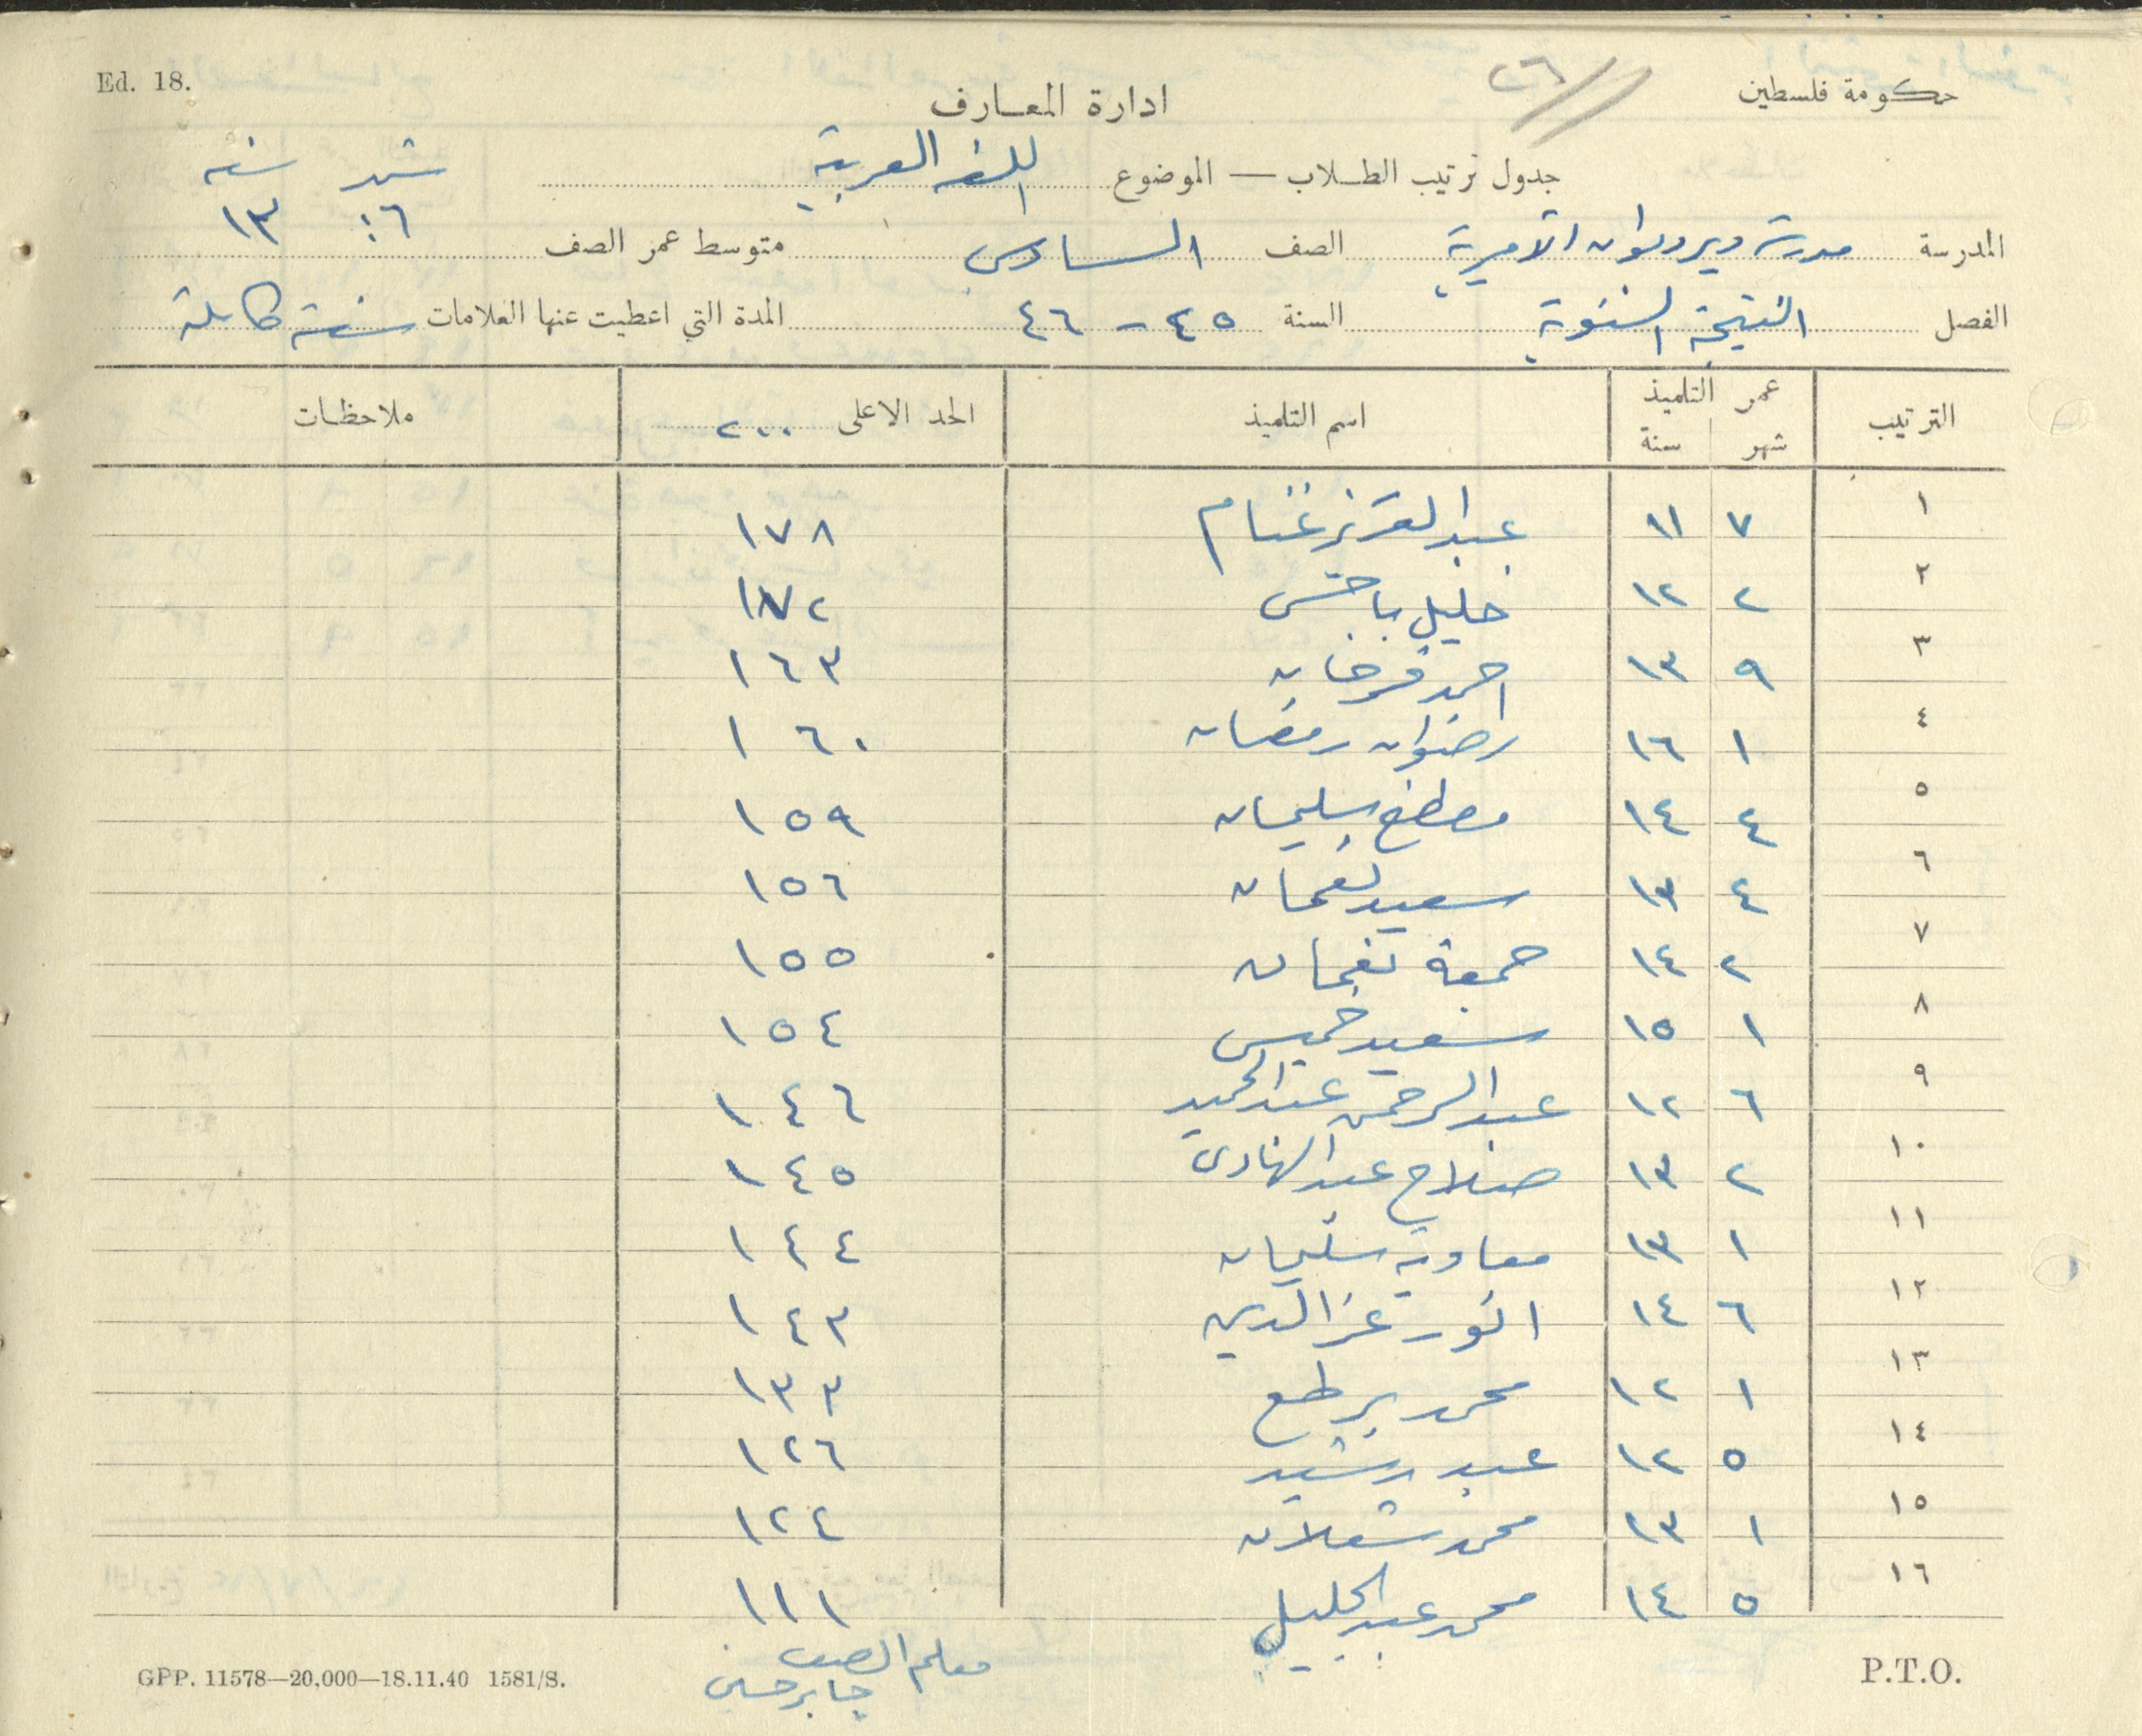 Ed. 18.
حكومة فلسطين
٢٦
ادارة المعارف
جدول ترتيب الطلاب — الموضوع اللغه العربية
شهر سنه
المدرسة مدرسة ديرديوان الاميرية الصف السادس متوسط عمر الصف ٦ ١٣
الفصل النتيجة السنوية السنة ٤٥ - ٤٦ المدة التي اعطيت عنها العلامات سنة كاملة
الترتيب عمر التلميذ اسم التلميذ الحد الاعلى ٢٠٠ ملاحظات
شهر سنة
١ ٧ ١١ عبد العزيز غنام ١٧٨
٢ ٢ ١٢ خليل باجس ١٧٢
٣ ٩ ١٣ احمد فرحان ١٦٣
٤ ١ ١٦ رضوان رمضان ١٦٠
٥ ٤ ١٤ مصطفى سليمان ١٥٩
٦ ٤ ١٣ سعيد نعمان ١٥٦
٧ ٢ ١٤ جمعة نعمان ١٥٥
٨ ١ ١٥ سعيد خميس ١٥٤
٩ ٦ ١٢ عبد الرحمن عبد الحميد ١٤٦
١٠ ٢ ١٣ صلاح عبد الهادي ١٤٥
١١ ١ ١٣ معاوية سليمان ١٤٤
١٢ ٦ ١٤ انور عز الدين ١٤٣
١٣ ١ ١٢ محمد ١٣٣
١٤ ٥ ١٢ عبد رشيد ١٢٦
١٥ ١ ١٣ محمد شعلان ١٢٤
١٦ ٥ ١٤ محمد عبد الجليل ١١١
معلم الصف
جابر حسن
GPP. 11578—20,000—18.11.40 1581/S.
P.T.O.